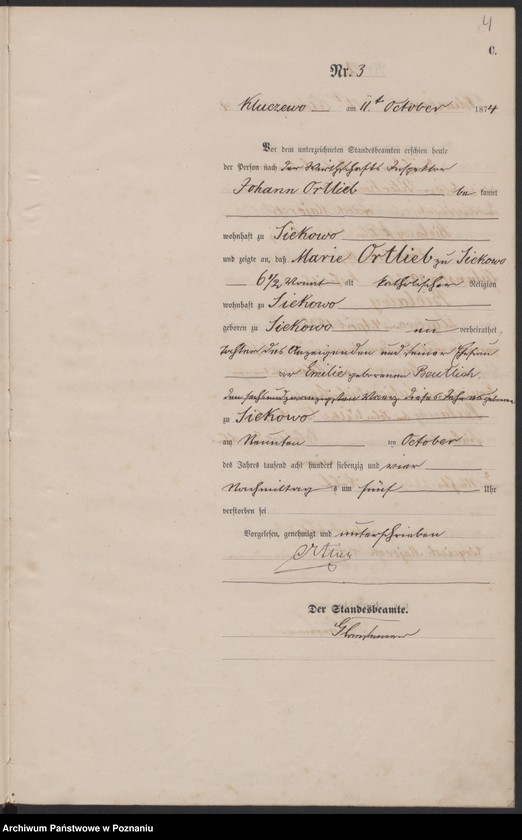 4
C.
Nr. 3
Kluczewo am 11.t October 1874
Vor dem unterzeichneten Standesbeamten erschien heute
der Person nach der Wirthschafts Inspektor
Johann Ortlieb be kannt
wohnhaft zu Siekowo
und zeigte an, daß Marie Ortlieb zu Siekowo
6 1/2 Monat alt katholischer Religion
wohnhaft zu Siekowo
geboren zu Siekowo un verheirathet,
Tochter des Anzeigenden und seiner Ehefrau
der Emilie geborenen
den sechsundzwanzigsten Maerz dieses Jahres geboren
zu Siekowo
am Neunten ten October
des Jahres tausend acht hundert siebenzig und vier
Nachmittag s um fünf Uhr
verstorben sei
Vorgelesen, genehmigt und unterschrieben
Der Standesbeamte.
Archiwum Państwowe w Poznaniu